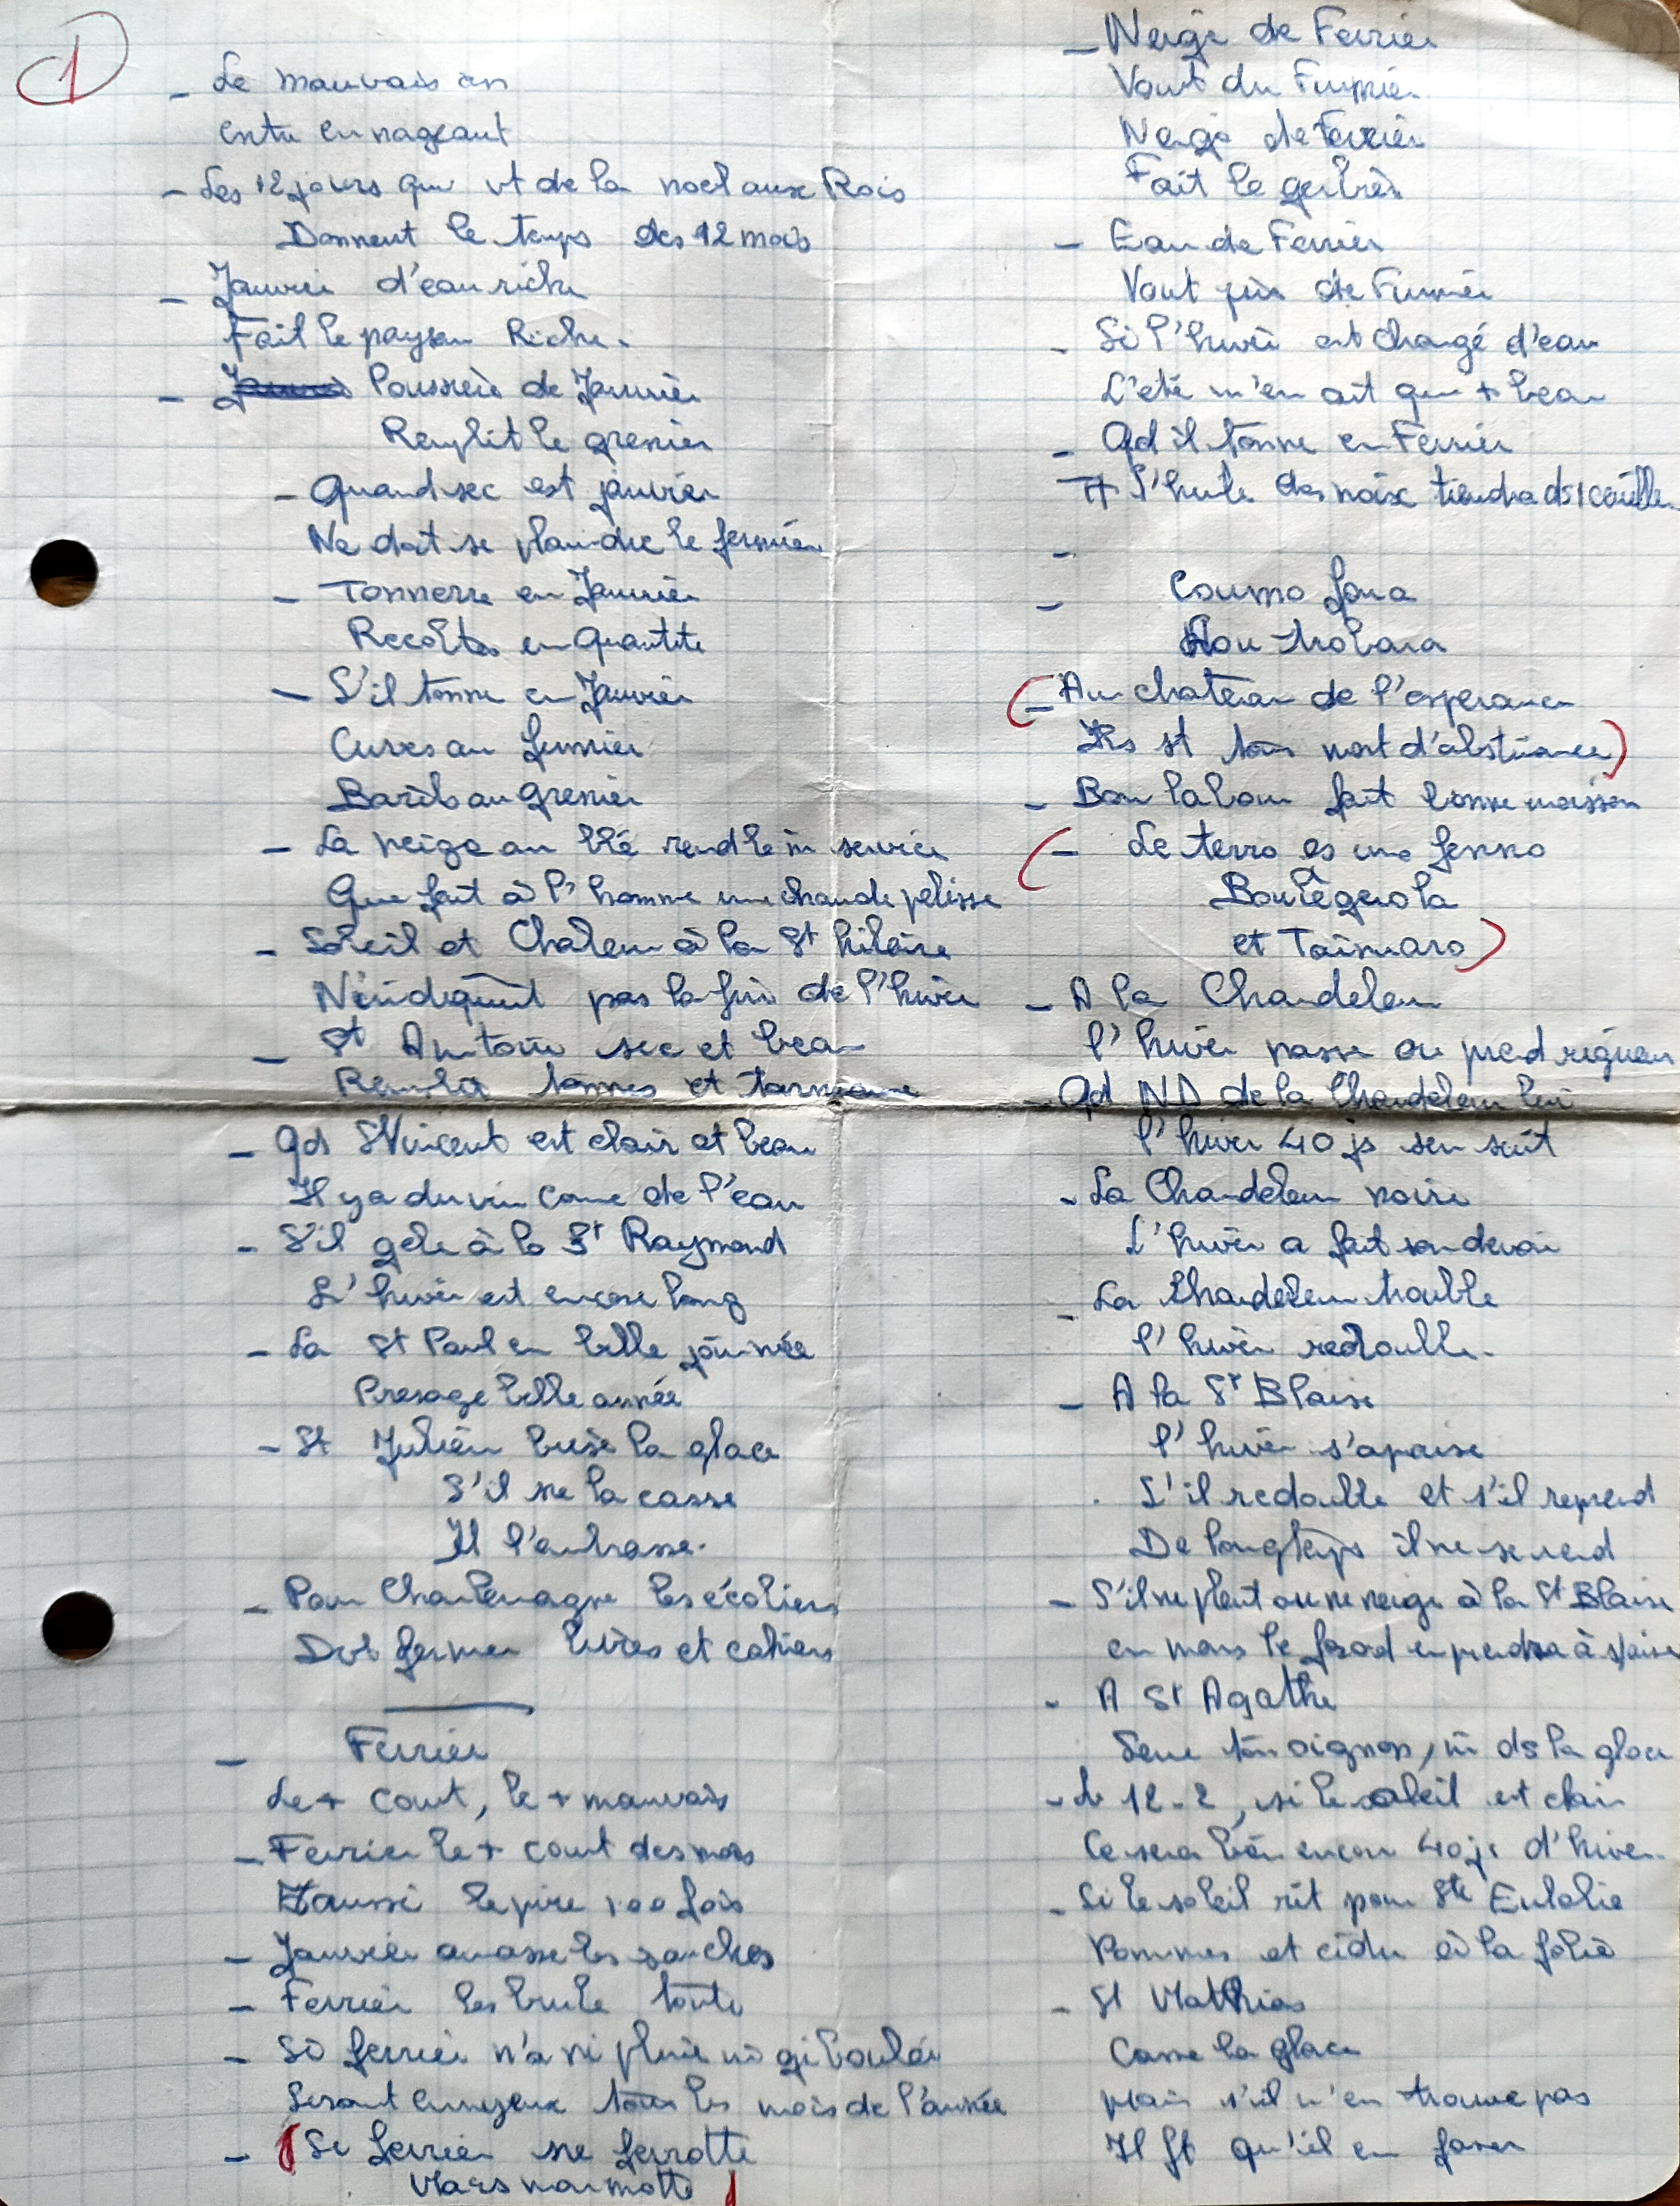 1
- Le mauvais an
entre en nageant
- Les 12 jours qui vt de la noel aux Rois
Donnent le temps des 12 mois
- Janvier d'eau riche
Fait le paysan Riche.
- Poussière de Janvier
Remplit le grenier
- Quand sec est janvier
Ne doit se plaindre le fermier
- Tonnerre en Janvier
Recoltes en quantite
- S'il tonne en Janvier
Cuves au fumier
Barils au grenier
- La neige au blé rend le m service
Que fait à l'homme une chaude pelisse
- Soleil et Chaleur à la St hilaire
N'indiquent pas la fin de l'hiver
- St Antoine sec et beau
Remplit tonnes et tonneaux
- Qd St Vincent est clair et beau
Il y a du vin come de l'eau
- S'il gele à la St Raymond
L'hiver est encore long
- La St Paul en belle journée
Presage belle année
- St Julien brise la glace
S'il ne la casse
Il l'embrasse.
- Pour Charlemagne les écoliers
Dvt fermer livres et cahiers
- Fevrier
Le + court, le + mauvais
- Fevrier le + court des mois
Et aussi le pire 100 fois
- Janvier amasse les souches
- Fevrier les brule toute
- Si fevrier n'a ni pluie ni giboulée
Seront ennuyeux tous les mois de l'année
- (Si fevrier ne fevrotte
Mars marmotte )
- Neige de Fevrier
Vaut du Fumier
Neige de Fevrier
Fait le gerbier
- Eau de Fevrier
Vaut jus de Fumier
- Si l'hiver est chargé d'eau
L'eté n'en est que + beau
- Qd il tonne en Fevrier
Tt l'huile des noix tiendra ds 1 cuiller
-
- Coumo fara
Hou trobara
(- Au chateau de l'esperance
Ils st tous mort d'abstinence)
- Bon labour fait bonne moisson
(- Le terro es uno fenno
Boulegero la
et T'aimaro)
- A la Chandeleur
l'hiver passe ou prend rigueur
- Qd ND de la Chandeleur luit
l'hiver 40 js sen suit
- La Chandeleur noire
L'hiver a fait son devoir
- La Chandeleur trouble
l'hiver redouble.
- A la St Blaise
l'hiver s'apaise
. S'il redouble et s'il reprend
De longtemps il ne se rend
- S'il ne pleut ou ne neige à la St Blaise
en mars le froid en prendra à s/aise
- A St Agathe
Seme ton oignon, m ds la glace
- Le 12-2, si le soleil est clair
Ce sera bien encore 40 js d'hiver.
- Si le soleil rit pour Ste Eulalie
Pommes et cidre à la folie
- St Matthias
Casse la glace
Mais s'il n'en trouve pas
Il ft qu'il en fasse